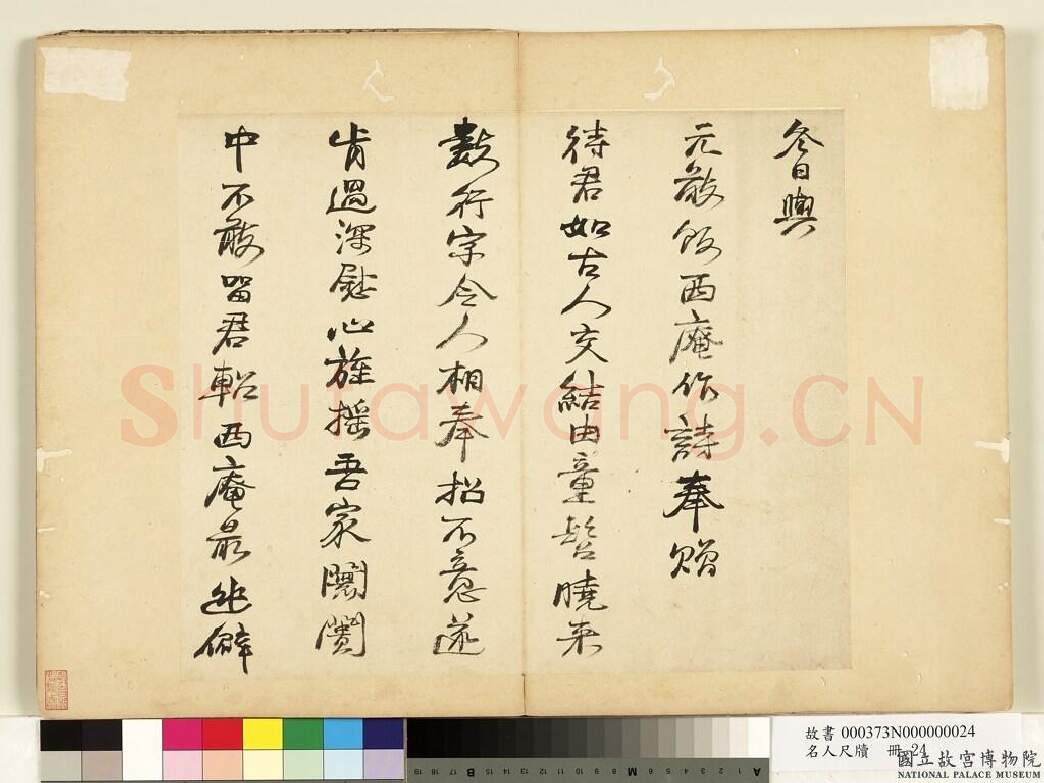 冬日與
元敬飯西庵作詩奉贈
待君如古人交結由童髫曉來
數行字令人相奉招不意遂
肯過深慰心旌搖吾家闤闠
中不敢留君軺西庵最逃僻
Shufawang.CN
故書 000373N000000024
名人尺牘 冊 24
國立故宮博物院
NATIONAL PALACE MUSEUM